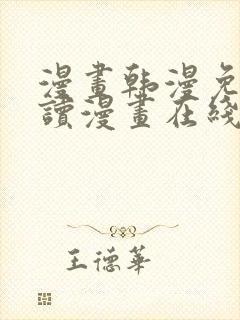 漫畫韩漫免
讀漫畫在綫
王德華